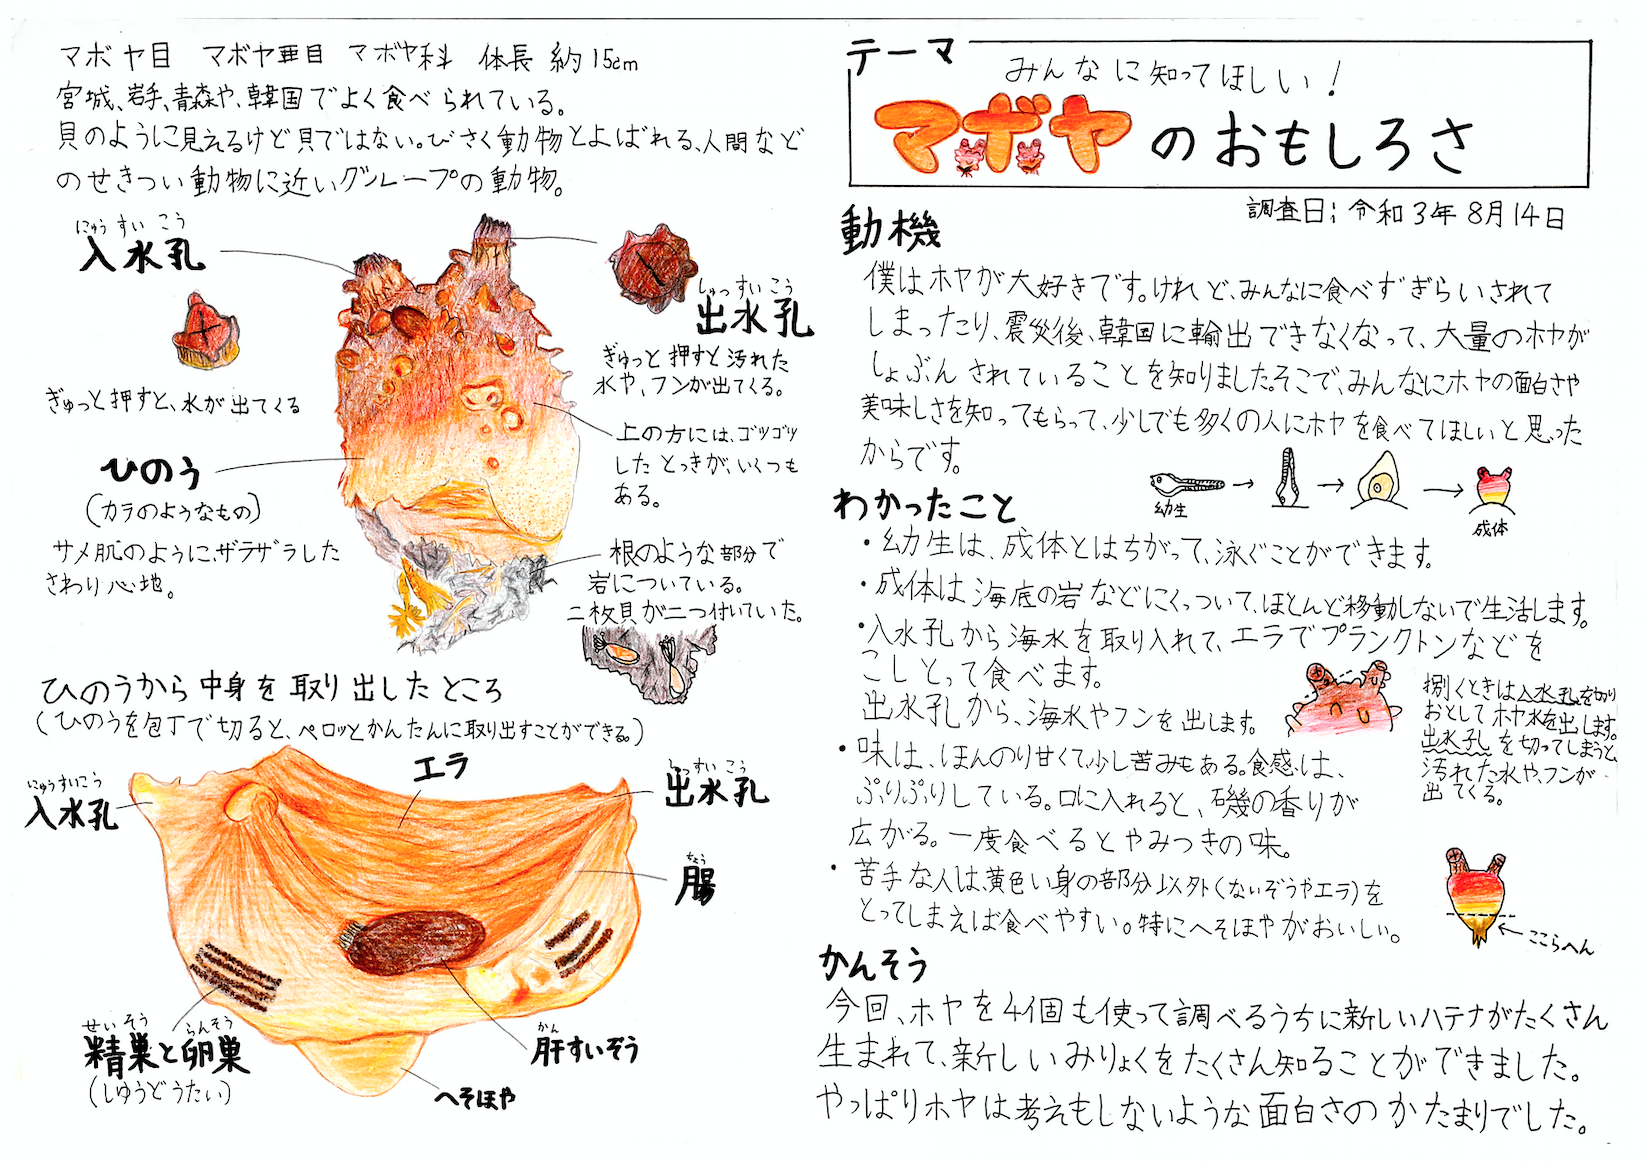 マボヤ目 マボヤ亜目 マボヤ科 体長 約15cm
宮城、岩手、青森や、韓国でよく食べられている。
貝のように見えるけど貝ではない。びさく動物とよばれる、人間など
のせきつい動物に近いグループの動物。
にゅう すい こう
入水孔
ぎゅっと押すと、水が出てくる
しゅっ すい こう
出水孔
ぎゅっと押すと汚れた
水や、フンが出てくる。
上の方には、ゴツゴツ
したとっきが、いくつも
ある。
ひのう
(カラのようなもの)
サメ肌のように、ザラザラした
さわり心地。
根のような部分で
岩についている。
二枚貝が二つ付いていた。
ひのうから中身を取り出したところ
(ひのうを包丁で切ると、ペロッとかんたんに取り出すことができる。)
にゅうすいこう
入水孔
エラ
しゅっすいこう
出水孔
ちょう
腸
せい そう らんそう
精巣と卵巣
(しゆうどうたい)
かん
肝すいぞう
へそほや
テーマ
みんなに知ってほしい!
マボヤのおもしろさ
調査日; 令和3年8月14日
動機
僕はホヤが大好きです。けれど、みんなに食べずぎらいされて
しまったり、震災後、韓国に輸出できなくなって、大量のホヤが
しょぶんされていることを知りました。そこで、みんなにホヤの面白さや
美味しさを知ってもらって、少しでも多くの人にホヤを食べてほしいと思った
からです。
幼生
成体
わかったこと
・幼生は、成体とはちがって、泳ぐことができます。
・成体は海底の岩などにくっついて、ほとんど移動しないで生活します。
・入水孔から海水を取り入れて、エラでプランクトンなどを
こしとって食べます。
出水孔から、海水やフンを出します。
捌くときは入水孔を切り
おとしてホヤ水を出します。
出水孔を切ってしまうと、
汚れた水や、フンが
出てくる。
・味は、ほんのり甘くて、少し苦みもある。食感は、
ぷりぷりしている。口に入れると、磯の香りが
広がる。一度食べるとやみつきの味。
・苦手な人は、黄色い身の部分以外(ないぞうやエラ)を
とってしまえば食べやすい。特にへそほやがおいしい。
ここらへん
かんそう
今回、ホヤを4個も使って調べるうちに新しいハテナがたくさん
生まれて、新しいみりょくをたくさん知ることができました。
やっぱりホヤは考えもしないような面白さのかたまりでした。